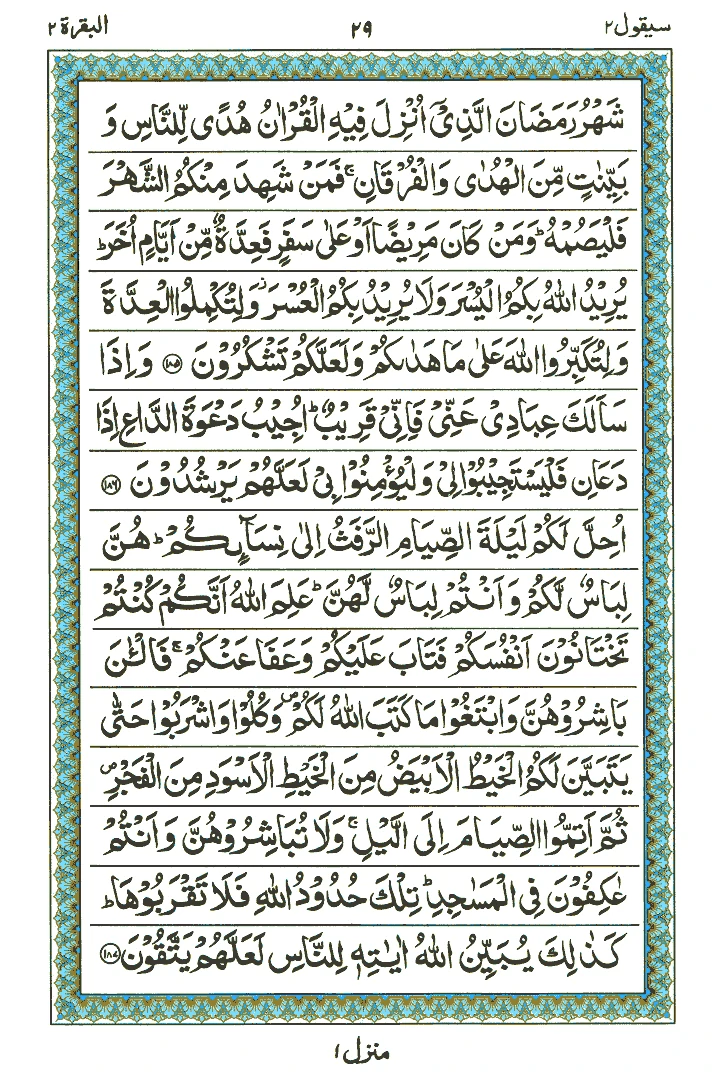 سيقول ٢
٢٩
البقرة ٢
شَهْرُ رَمَضَانَ الَّذِيْۤ اُنْزِلَ فِيْهِ الْقُرْاٰنُ هُدًى لِّلنَّاسِ وَ
بَيِّنٰتٍ مِّنَ الْهُدٰى وَالْفُرْقَانِ ۚ فَمَنْ شَهِدَ مِنْكُمُ الشَّهْرَ
فَلْيَصُمْهُ ؕ وَمَنْ كَانَ مَرِيْضًا اَوْ عَلٰى سَفَرٍ فَعِدَّةٌ مِّنْ اَيَّامٍ اُخَرَ ؕ
يُرِيْدُ اللّٰهُ بِكُمُ الْيُسْرَ وَلَا يُرِيْدُ بِكُمُ الْعُسْرَ ؗ وَلِتُكْمِلُوا الْعِدَّةَ
وَلِتُكَبِّرُوا اللّٰهَ عَلٰى مَا هَدٰىكُمْ وَلَعَلَّكُمْ تَشْكُرُوْنَ ﴿١٨٥﴾ وَاِذَا
سَاَلَكَ عِبَادِيْ عَنِّيْ فَاِنِّيْ قَرِيْبٌ ؕ اُجِيْبُ دَعْوَةَ الدَّاعِ اِذَا
دَعَانِ فَلْيَسْتَجِيْبُوْا لِيْ وَلْيُؤْمِنُوْا بِيْ لَعَلَّهُمْ يَرْشُدُوْنَ ﴿١٨٦﴾
اُحِلَّ لَكُمْ لَيْلَةَ الصِّيَامِ الرَّفَثُ اِلٰى نِسَآىِٕكُمْ ؕ هُنَّ
لِبَاسٌ لَّكُمْ وَاَنْتُمْ لِبَاسٌ لَّهُنَّ ؕ عَلِمَ اللّٰهُ اَنَّكُمْ كُنْتُمْ
تَخْتَانُوْنَ اَنْفُسَكُمْ فَتَابَ عَلَيْكُمْ وَعَفَا عَنْكُمْ ۚ فَالْـٰٔنَ
بَاشِرُوْهُنَّ وَابْتَغُوْا مَا كَتَبَ اللّٰهُ لَكُمْ ۪ وَكُلُوْا وَاشْرَبُوْا حَتّٰى
يَتَبَيَّنَ لَكُمُ الْخَيْطُ الْاَبْيَضُ مِنَ الْخَيْطِ الْاَسْوَدِ مِنَ الْفَجْرِ ۪
ثُمَّ اَتِمُّوا الصِّيَامَ اِلَى الَّيْلِ ۚ وَلَا تُبَاشِرُوْهُنَّ وَاَنْتُمْ
عٰكِفُوْنَ فِي الْمَسٰجِدِ ؕ تِلْكَ حُدُوْدُ اللّٰهِ فَلَا تَقْرَبُوْهَا ؕ
كَذٰلِكَ يُبَيِّنُ اللّٰهُ اٰيٰتِهٖ لِلنَّاسِ لَعَلَّهُمْ يَتَّقُوْنَ ﴿١٨٧﴾
منزل ١